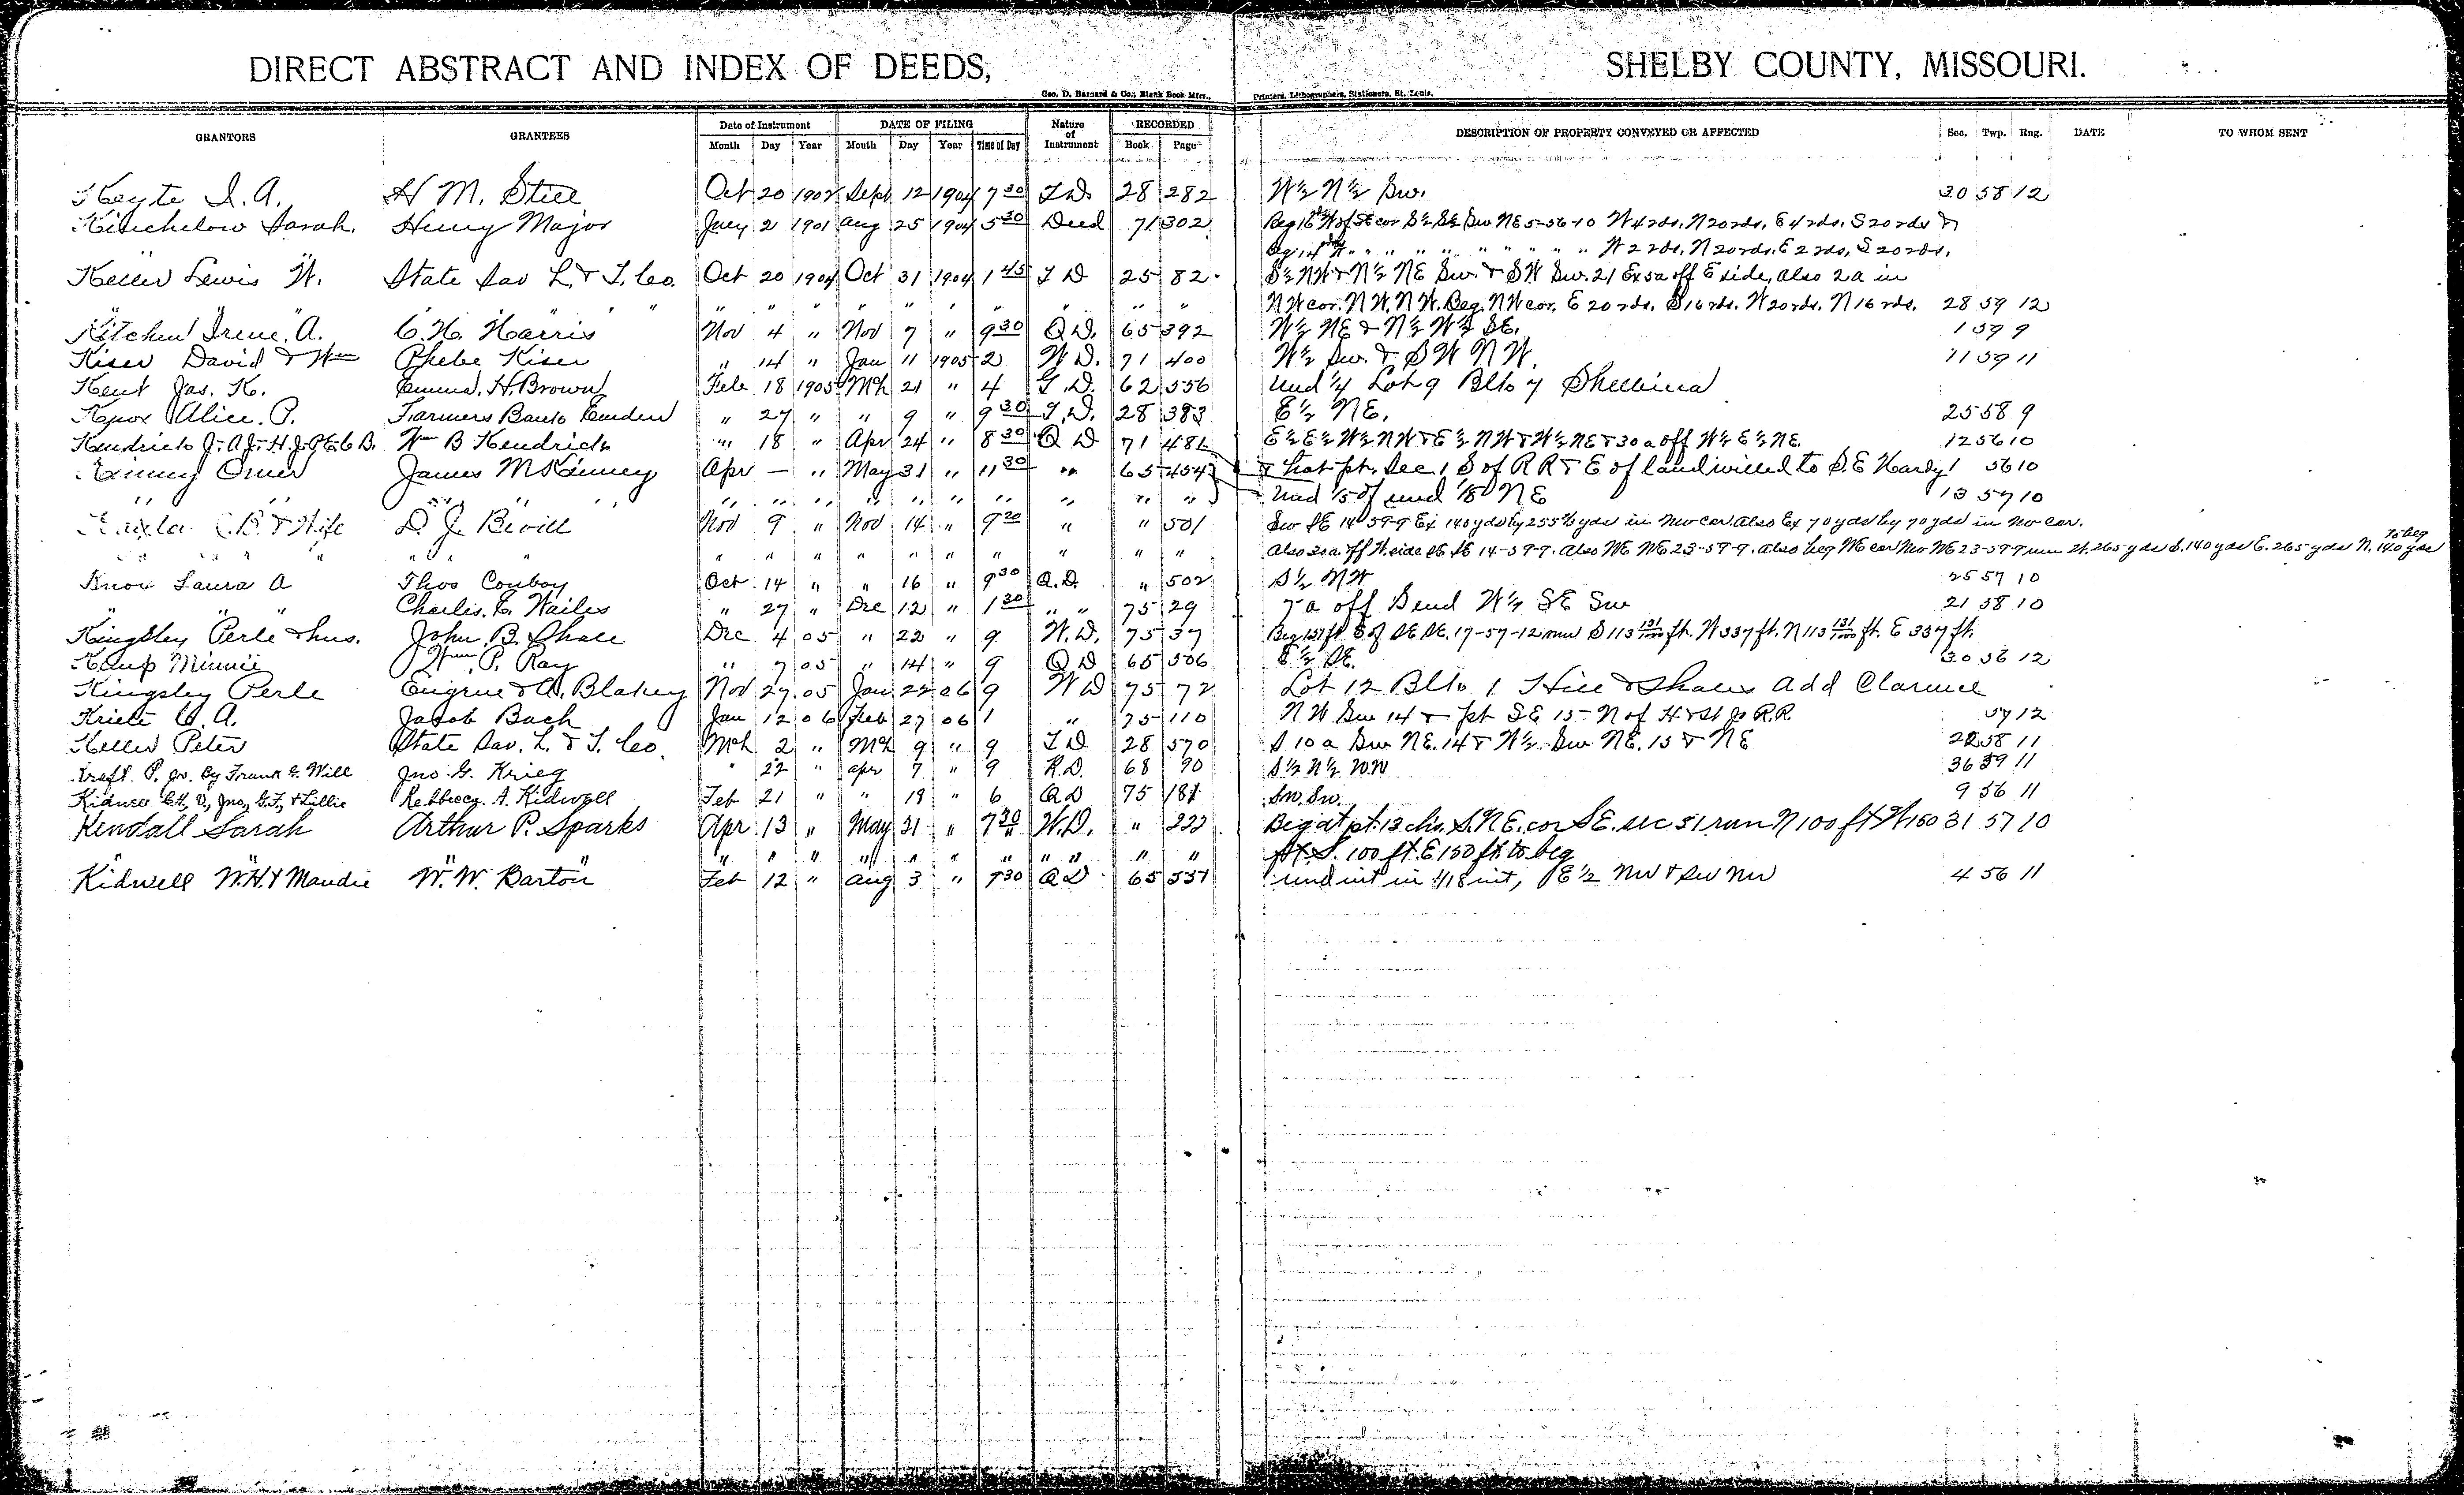 DIRECT ABSTRACT AND INDEX OF DEEDS, SHELBY COUNTY, MISSOURI.
Geo. D. Barnard & Co., Blank Book Mfrs., Printers, Lithographers, Stationers, St. Louis.
GRANTORS GRANTEES Date of Instrument DATE OF FILING Nature of Instrument RECORDED DESCRIPTION OF PROPERTY CONVEYED OR AFFECTED Sec. Twp. Rng. DATE TO WHOM SENT
Month Day Year Month Day Year Time of Day Book Page
Keyte I. A. H M. Still Oct 20 1902 Sept 12 1904 7 30 T D. 28 282 W½ N½ Sw. 30 58 12
Kinchelow Sarah. Henry Major July 2 1901 Aug 25 1904 5 30 Deed 71 302 Beg 16 W of SE cor S½ S½ Sw NE 5-56-10 W 4 rds, N 20 rds, E 4 rds, S 20 rds &
Beg 14 W. " " " " " " " " W 2 rds, N 20 rds, E 2 rds, S 20 rds.
Keller Lewis W. State Sav L. & T. Co. Oct 20 1904 Oct 31 1904 1 45 T D 25 82 S½ NW & N½ NE Sw. & SW Sw. 21 Ex 5a off E side, also 2a in
" " " " " " " " " " NW cor. N W. N W. Beg. NW cor. E 20 rds. S 16 rds. W 20 rds. N 16 rds. 28 59 12
Kitchen Irene. A. C. H. Harris Nov 4 " Nov 7 " 9 30 Q D. 65 392 W½ NE & N½ W½ SE. 1 59 9
Kiser David & Wm Phebe Kiser " 14 " Jan 11 1905 2 W D. 71 400 W½ Sw. & SW NW. 11 59 11
Kent Jas. K. Emma. H. Brown Feb 18 1905 Mch 21 " 4 G D. 62 556 Und ¼ Lot 9 Blk 7 Shelbina
Knox Alice. P. Farmers Bank Emden " 27 " " 9 " 9 30 T. D. 28 383 E½ NE. 25 58 9
Kendrick J. A. J. H. J. P. E. C B. Wm B Kendrick " 18 " Apr 24 " 8 30 Q D 71 481 E½ E½ W½ NW & E½ NW & W½ NE & 30 a off W½ E½ NE. 12 56 10
Kinney Omer James McKinney Apr — " May 31 " 11 30 " 65 454 & that pt. Sec 1 S of RR & E of land willed to S. E Hardy 1 56 10
" " " " " " " " " " " " " " Und 1/5 of und 1/8 NE 13 57 10
C. B. & Wife D. J. Bevill Nov 9 " Nov 14 " 9 20 " " 501 Sw SE 14 59-9 Ex 140 yds by 255⅔ yds in Nw cor. Also Ex 70 yds by 70 yds in No cor.
" " " " " " " " " " " " " " Also 30 a. off N. side SE SE 14-59-9. Also NE NE 23-59-9. Also beg NE cor Nw NE 23-59-9 run W. 265 yds S. 140 yds E. 265 yds N. 140 yds To beg
Knox Laura A Thos Conboy Oct 14 " " 16 " 9 30 Q. D. " 502 S½ NW 25 57 10
" " " Charlis. E. Wailes " 27 " Dec 12 " 1 30 " " 75 29 7 a off S end W½ SE Sw 21 58 10
Kingsley Perle & hus. John. B. Shale Dec 4 05 " 22 " 9 W. D. 75 37 Beg 137 ft. S of SE SE. 17-57-12 run S 113 131/1000 ft. W 337 ft. N 113 131/1000 ft. E 337 ft.
Kemp Minnie Wm. P. Ray " 7 05 " 14 " 9 Q D 65 506 E½ SE. 30 56 12
Kingsley Perle Eugene & A. Blakey Nov 27 05 Jan 22 06 9 W D 75 72 Lot 12 Blk 1 Hill & Shales Add Clarence
Kriete C. A. Jacob Bach Jan 12 06 Feb 27 06 1 " 75 110 N W Sw 14 & pt SE 15 - N of H & St Jo R.R. 57 12
Keller Peter State Sav. L. & T. Co. Mch 2 " Mch 9 " 9 T D 28 570 S 10 a Sw NE. 14 & W½ Sw NE. 15 & NE 22 58 11
Kraft. P. Jr. by Frank G. Will Jno G. Krieg " 22 " Apr 7 " 9 R. D. 68 90 S½ N½ NW 36 59 11
Kidwell C. H, D, Jno, G. F, & Lillie Rebbecca. A. Kidwell Feb 21 " " 19 " 6 Q D 75 181 Sw. Sw. 9 56 11
Kendall Sarah Arthur P. Sparks Apr 13 " May 31 " 7 30 W. D. " 222 Beg at pt. 13 chs. S. N. E. cor SE. sec 31 run N 100 ft W 150 31 57 10
" " " " " " " " " " " " ft. S. 100 ft. E 150 ft to beg
Kidwell W. H. & Maudie W. W. Barton Feb 12 " Aug 3 " 7 30 Q D 65 537 und int in 1/18 int, E½ NW & SW NW 4 56 11